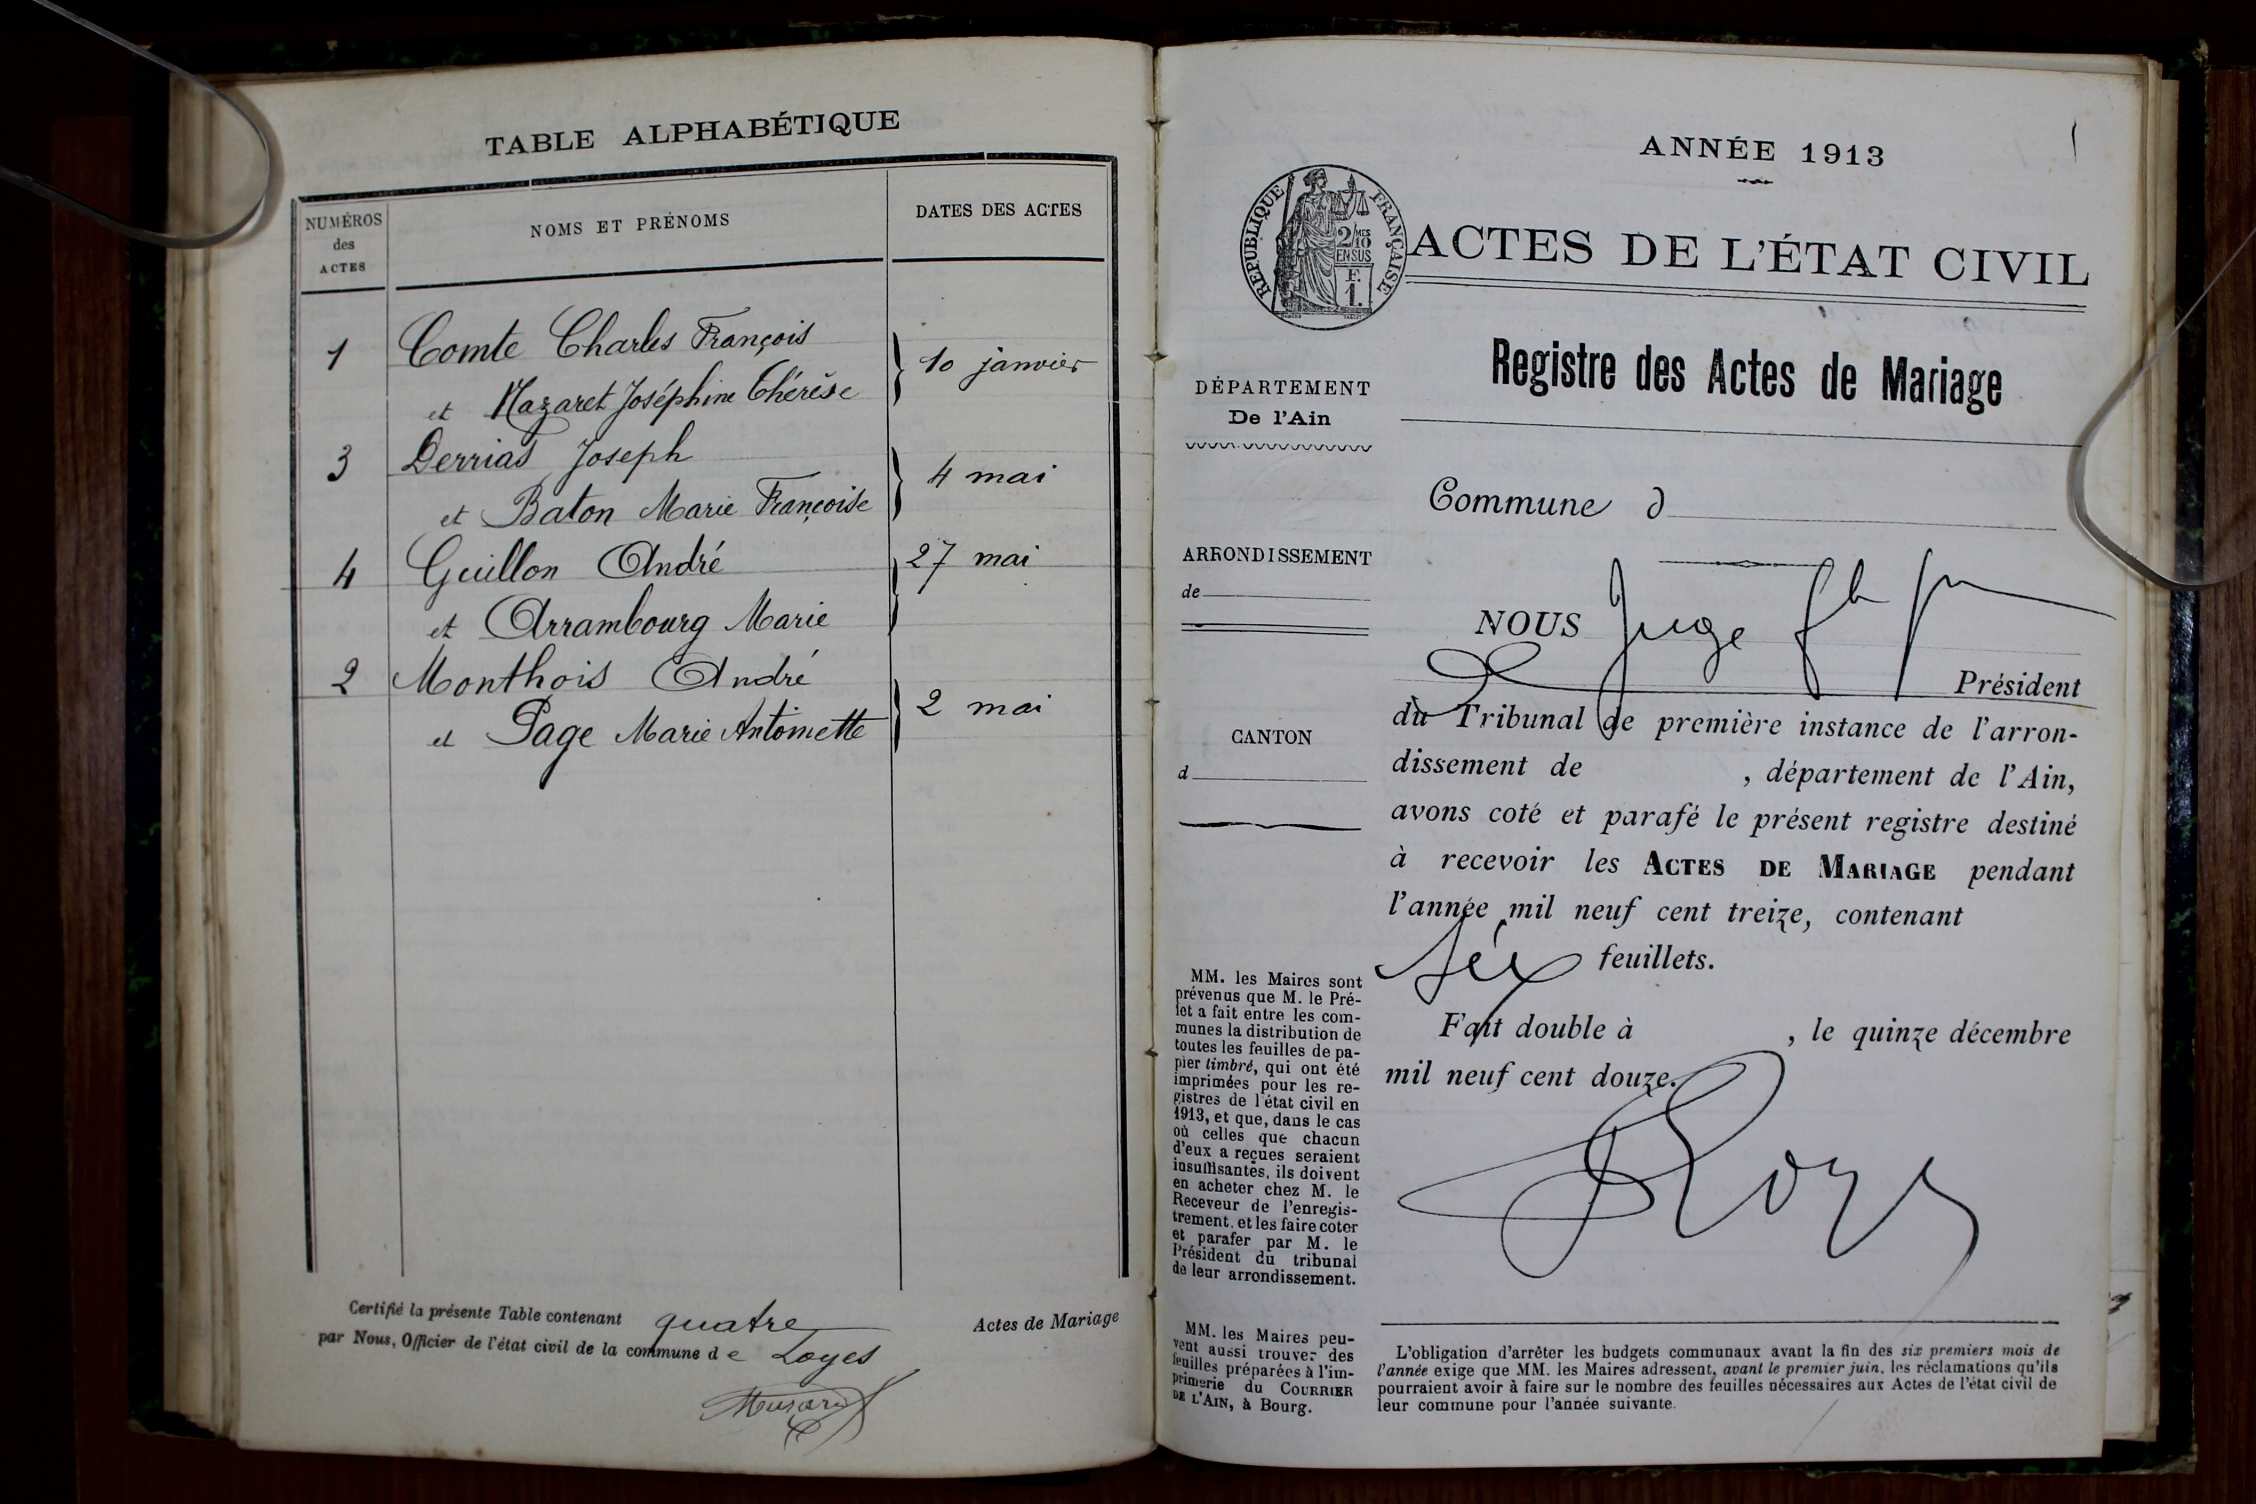 TABLE ALPHABÉTIQUE
NUMÉROS
des
ACTES
NOMS ET PRÉNOMS
DATES DES ACTES
1 Comte Charles François
et Mazaret Joséphine Thérèse
10 janvier
3 Derrias Joseph
et Baton Marie Françoise
4 mai
4 Guillon André
27 mai
et Arrambourg Marie
2 Monthois André
et Page Marie Antoinette
2 mai
Certifié la présente Table contenant quatre Actes de Mariage
par Nous, Officier de l'état civil de la commune de Loyes
1
ANNÉE 1913
RÉPUBLIQUE FRANÇAISE
2/10
MES
EN SUS
F.
1.
ACTES DE L'ÉTAT CIVIL
Registre des Actes de Mariage
DÉPARTEMENT
De l'Ain
Commune d
ARRONDISSEMENT
de
CANTON
d
NOUS Juge
Président
du Tribunal de première instance de l'arron-
dissement de , département de l'Ain,
avons coté et parafé le présent registre destiné
à recevoir les ACTES DE MARIAGE pendant
l'année mil neuf cent treize, contenant
six feuillets.
Fait double à , le quinze décembre
mil neuf cent douze.
MM. les Maires sont
prévenus que M. le Pré-
fet a fait entre les com-
munes la distribution de
toutes les feuilles de pa-
pier timbré, qui ont été
imprimées pour les re-
gistres de l'état civil en
1913, et que, dans le cas
où celles que chacun
d'eux a reçues seraient
insuffisantes, ils doivent
en acheter chez M. le
Receveur de l'enregis-
trement, et les faire coter
et parafer par M. le
Président du tribunal
de leur arrondissement.
MM. les Maires peu-
vent aussi trouver des
feuilles préparées à l'im-
primerie du COURRIER
DE L'AIN, à Bourg.
L'obligation d'arrêter les budgets communaux avant la fin des six premiers mois de
l'année exige que MM. les Maires adressent, avant le premier juin, les réclamations qu'ils
pourraient avoir à faire sur le nombre des feuilles nécessaires aux Actes de l'état civil de
leur commune pour l'année suivante.